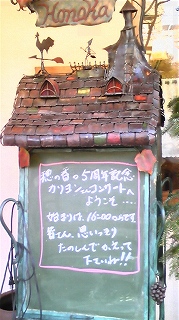 Honoka
穂の香の5周年記念
カリヨンのコンサートへ
ようこそ....
始まりは、16:00からです
皆さん、思いっきり
たのしんで かえって
下さいね!!